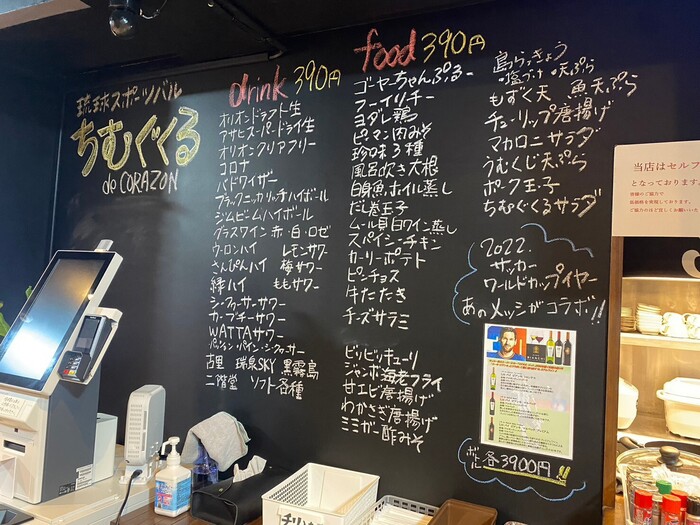 琉球スポーツバル
ちむぐくる
de CORAZON
drink 390円
オリオンドラフト生
アサヒスーパードライ生
オリオンクリアフリー
コロナ
バドワイザー
ブラックニッカリッチハイボール
ジムビームハイボール
グラスワイン 赤・白・ロゼ
ウーロンハイ レモンサワー
さんぴんハイ 梅サワー
緑ハイ ももサワー
シークァーサーサワー
カーブチーサワー
WATTAサワー
パッションパイン・シークァーサー
古里 瑞泉SKY 黒霧島
二階堂 ソフト各種
food 390円
ゴーヤーちゃんぷるー
フーイリチー
ヨダレ鶏
ピーマン肉みそ
珍味3種
風呂吹き大根
白身魚ホイル蒸し
だし巻玉子
ムール貝白ワイン蒸し
スパイシーチキン
カーリーポテト
ピンチョス
牛たたき
チーズサラミ
ビリビリキューリ
ジャンボ海老フライ
甘エビ唐揚げ
わかさぎ唐揚げ
ミミガー酢みそ
島らっきょう
・塩づけ・天ぷら
もずく天 魚天ぷら
チューリップ唐揚げ
マカロニサラダ
うむくじ天ぷら
ポーク玉子
ちむぐくるサラダ
2022.
サッカー
ワールドカップイヤー
あのメッシがコラボ!!
ボトル各3900円!!
当店はセルフ
となっております。